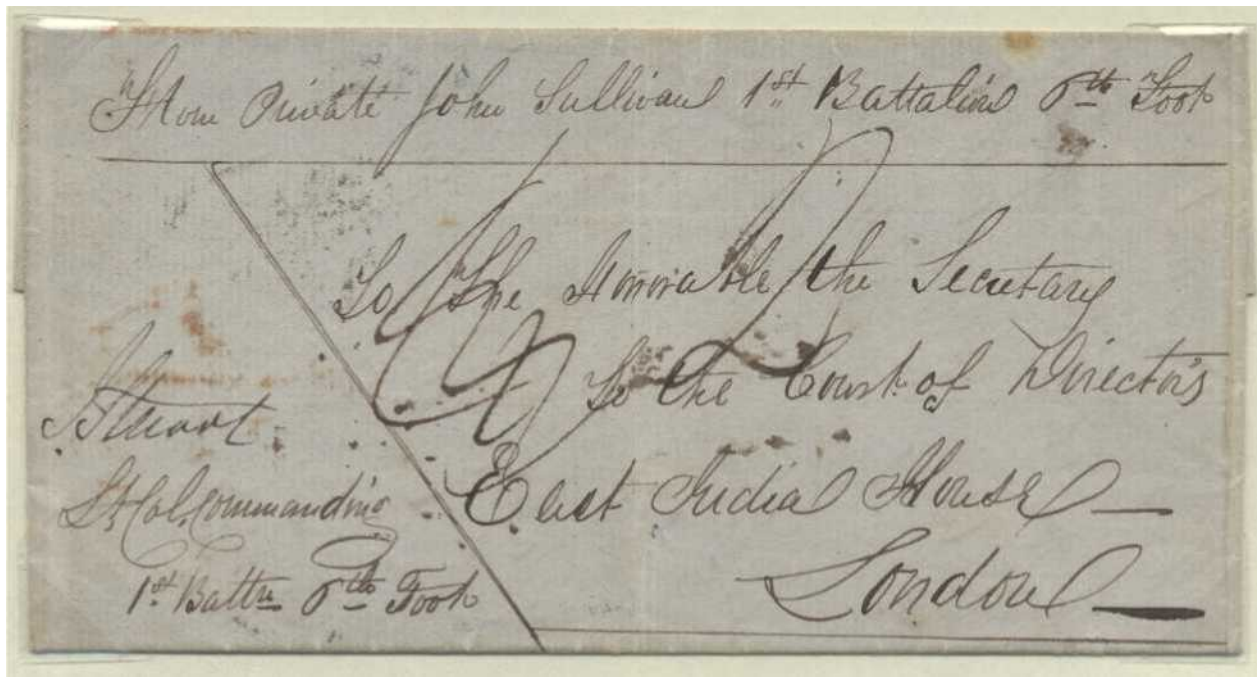 From Private John Sullivan 1st Battalion 6th Foot
To The Honorable the Secretary
To the Court of Directors
East India House
London
Lt Col. Commanding
1st Battn 6th Foot